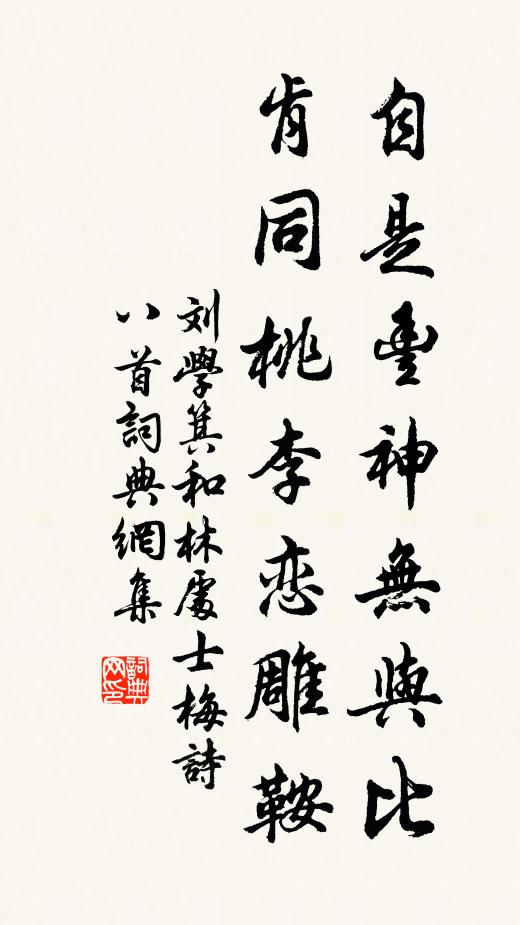 自是豊神無與比
肯同桃李恋雕鞍
刘學箕和林處士梅詩
八首詞典網集
詞典网印